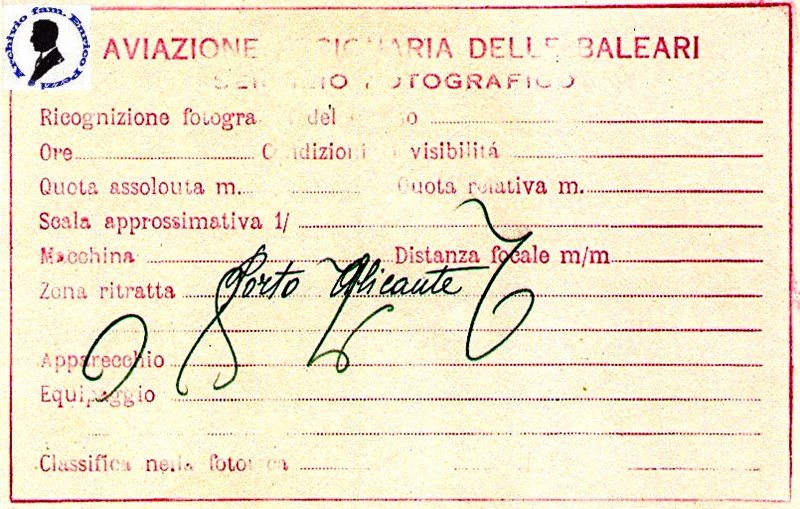 Archivio fam. Enrico Pezzi
AVIAZIONE DELLE BALEARI
SERVIZIO FOTOGRAFICO
Ricognizione del
Ore Condizioni visibilitá
Quota assolouta m. Quota relativa m.
Scala approssimativa 1/
Macchina Distanza focale m/m
Zona ritratta Porto Alicante
Apparecchio
Equipaggio
Classifica nella